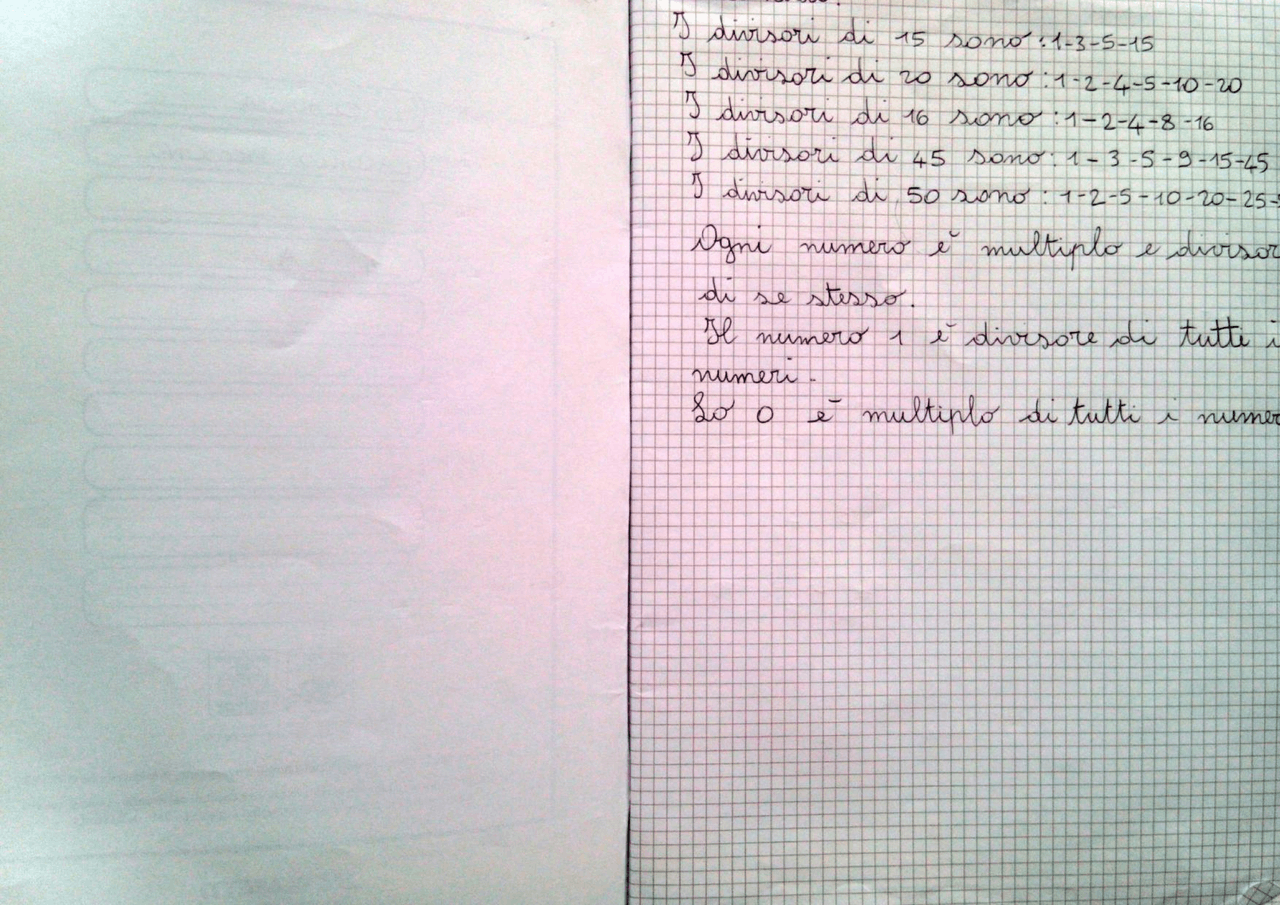 I divisori di 15 sono: 1-3-5-15
I divisori di 20 sono: 1-2-4-5-10-20
I divisori di 16 sono: 1-2-4-8-16
I divisori di 45 sono: 1-3-5-9-15-45
I divisori di 50 sono: 1-2-5-10-20-25-
Ogni numero è multiplo e divisor
di se stesso.
Il numero 1 è divisore di tutte i
numeri.
Lo 0 è multiplo di tutti i numer